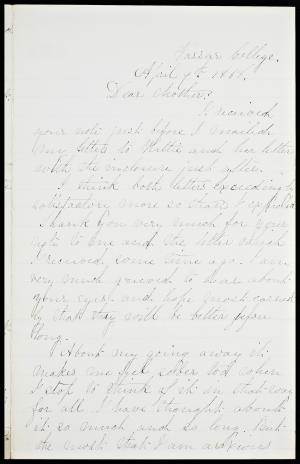 Vassar College.
April 9th 1869.
Dear Mother:
I received
your note just before I mailed
my letter to Hattie and her letter
with the inclosure just after.
I think both letters exceedingly
satisfactory more so than I expected
Thank you very much for your
note to me and the letter which
I received some time ago. I am
very much grieved to hear about
your eyes, and hope most earnest
ly that they will be better before
long.
About my going away it
makes me feel sober too when
I stop to think of it in that way
for all I have thought about
it so much and so long. But
the most that I am anxious